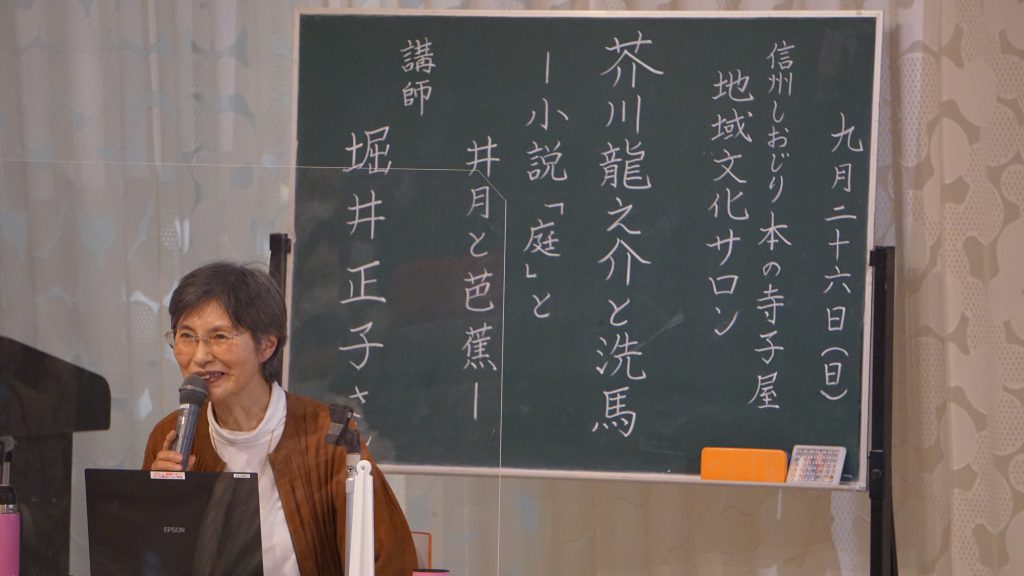 九月二十六日(日)
信州しおじり 本の寺子屋
地域文化サロン
芥川龍之介と洗馬
―小説「庭」と
井月と芭蕉―
講師
堀井正子さ
EPSON